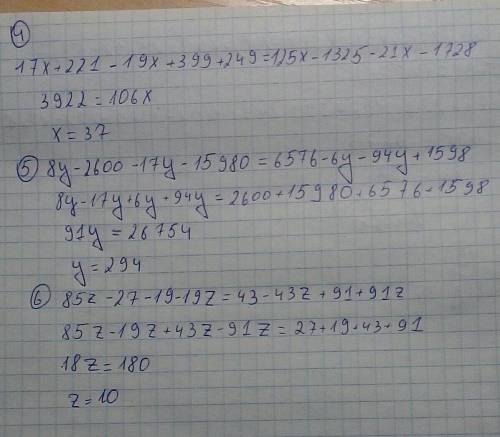 4
17x+221-19x+399+249=125x-1325-21x-1728
3922=106x
x=37
5 8y-2600-17y-15980=6576-6y-94y+1598
8y-17y+6y+94y=2600+15980+6576+1598
91y=26754
y=294
6 85z-27-19-19z=43-43z+91+91z
85z-19z+43z-91z=27+19+43+91
18z=180
z=10